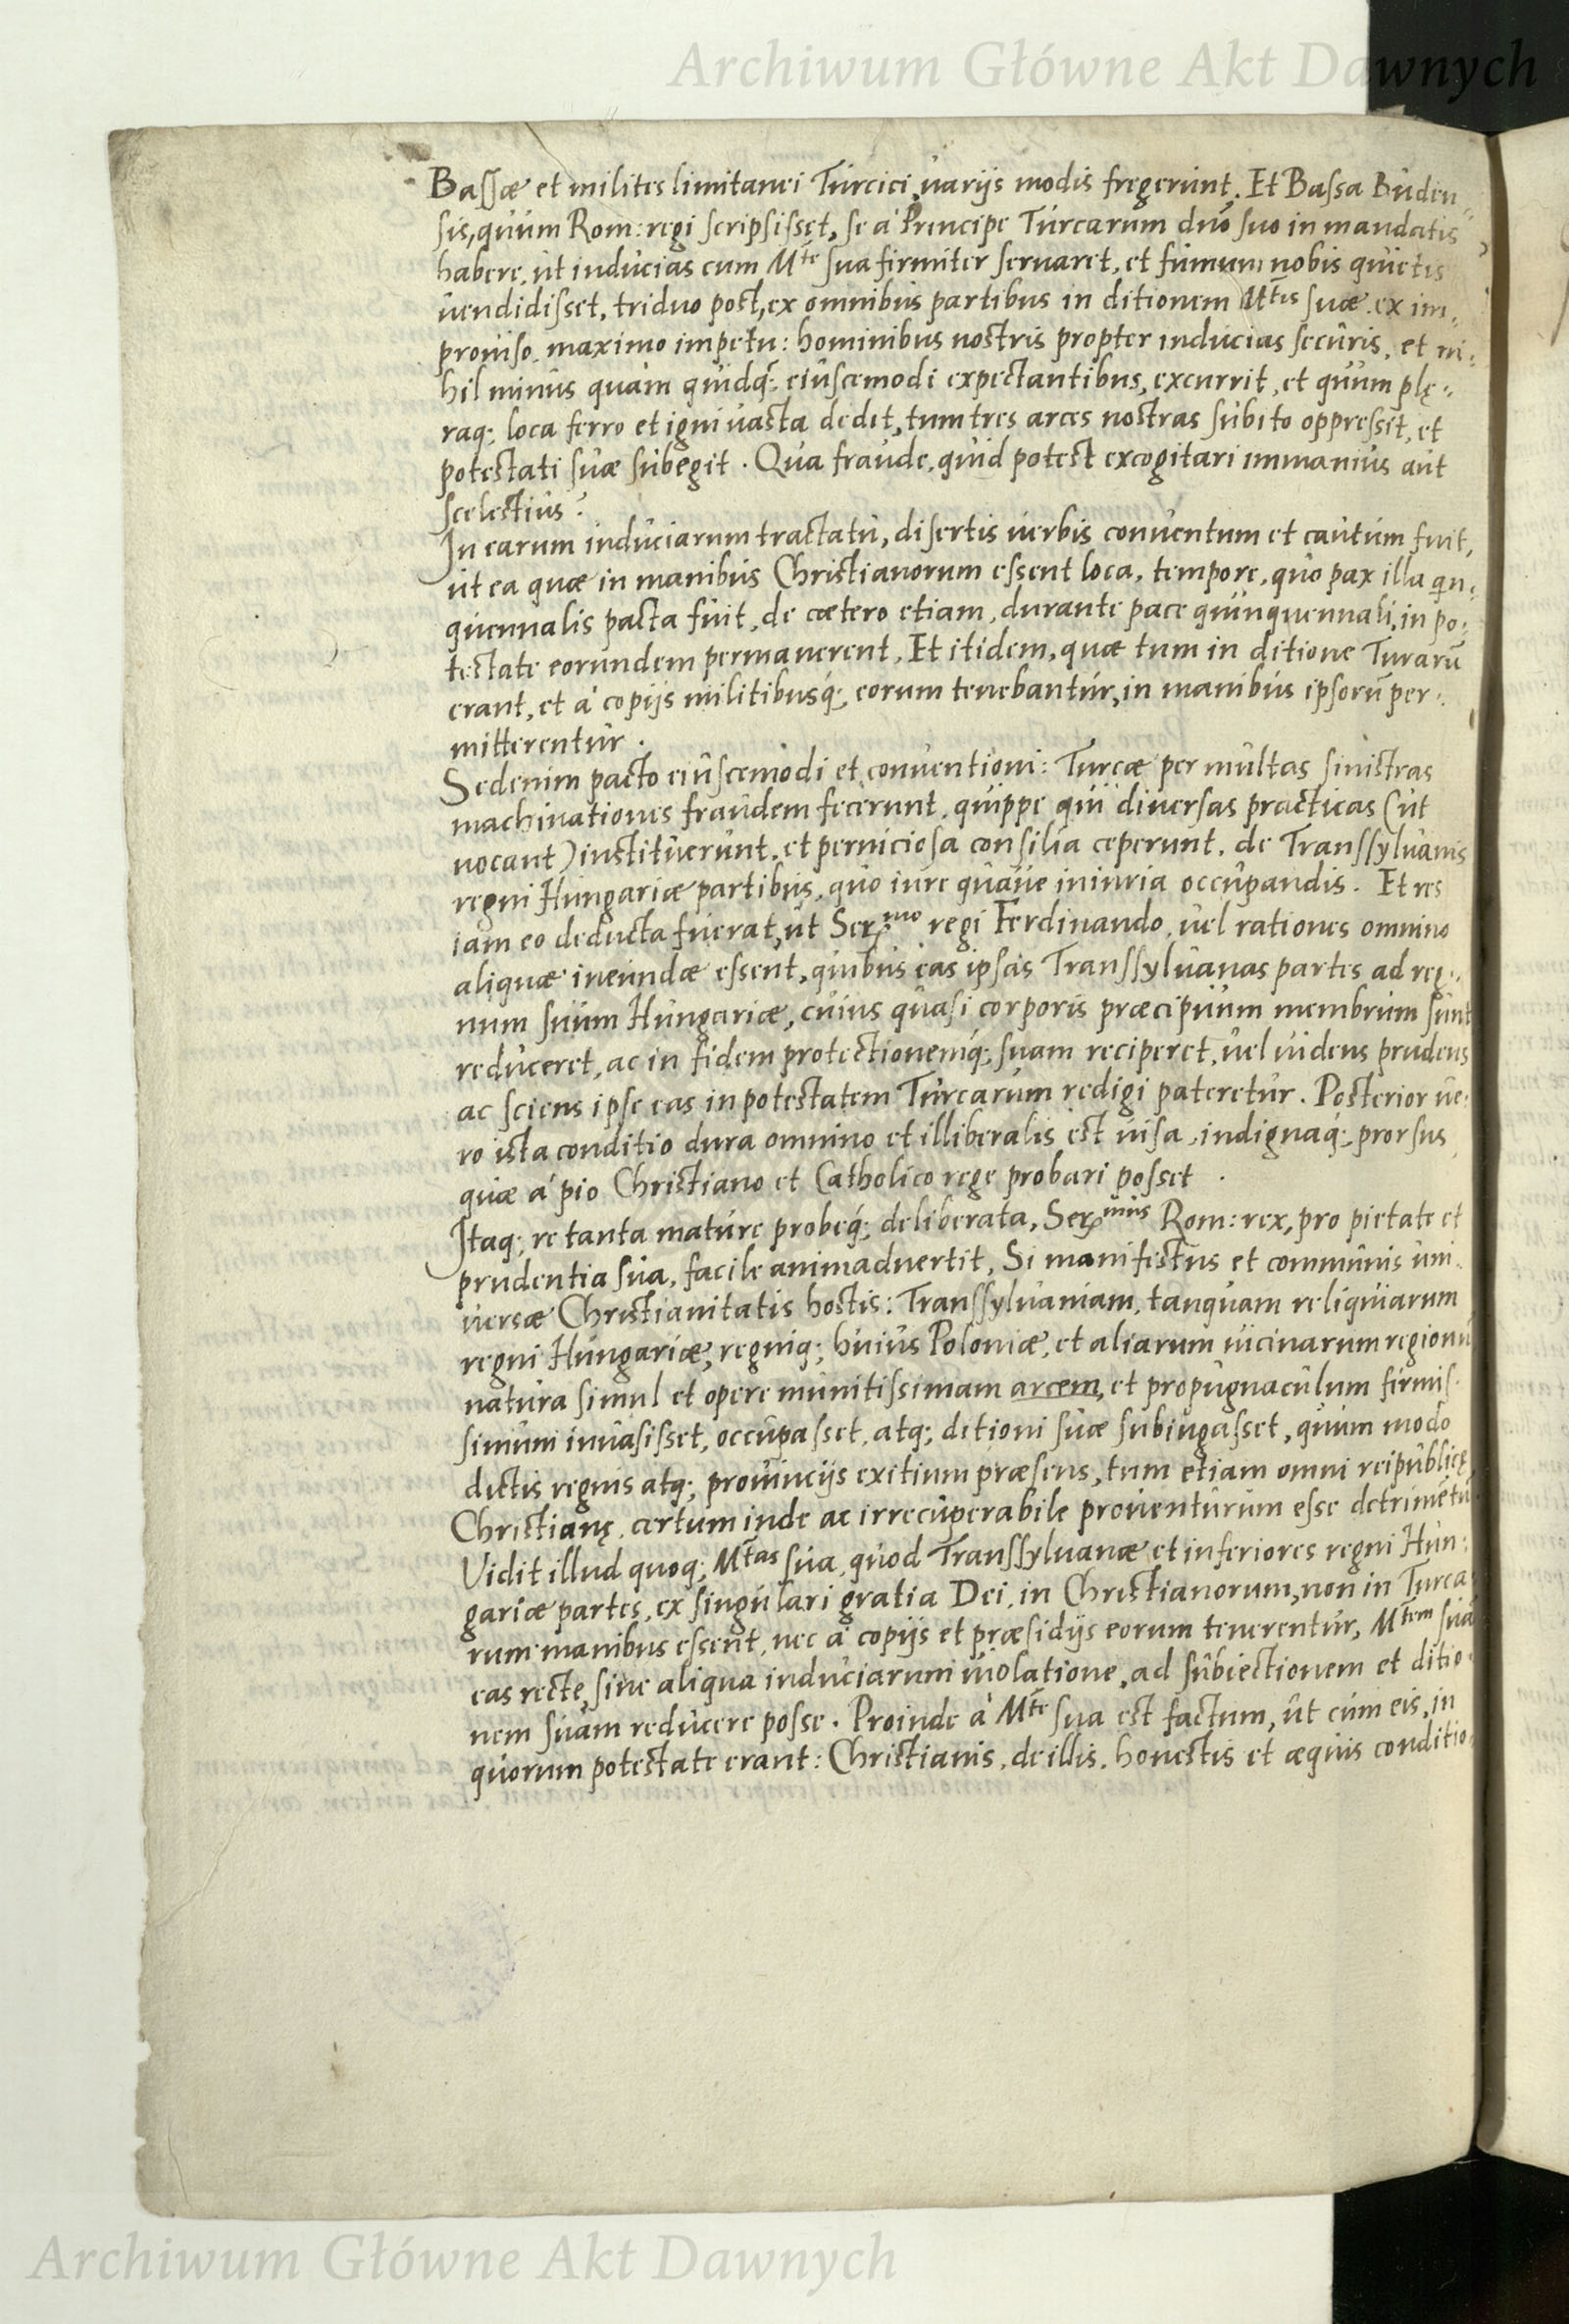 Archiwum Główne Akt Dawnych
Bassæ et milites limitanei Turcici, uarijs modis fregerunt. Et Bassa Buden„
sis, quum Rom: regi scripsisset, se a Principe Turcarum dno suo in mandatis
habere, ut inducias cum Mte sua firmiter seruaret, et fumum nobis quietis
uendidisset, triduo post, ex omnibus partibus in ditionem Mtis suæ, ex im„
prouiso, maximo impetu: hominibus nostris propter inducias securis, et ni:
hil minus quam quidq; eiuscemodi expectantibus, excurrit, et quum plę„
raq; loca ferro et igni uasta dedit, tum tres arces nostras subito oppressit, et
potestati suæ subegit. Qua fraude, quid potest excogitari immanius aut
scelestius?
In earum induciarum tractatu, disertis uerbis conuentum et cautum fuit,
ut ea quæ in manibus Christianorum essent loca, tempore, quo pax illa qn„
quennalis pacta fuit, de cætero etiam, durante pace quinquennali, in po:
testate eorundem permanerent, Et itidem, quæ tum in ditione Turarũ
erant, et a copijs militibusq; eorum tenebantur, in manibus ipsorũ per:
mitterentur.
Sedenim pacto eiuscemodi et conuentioni: Turcæ per multas sinistras
machinationes fraudem fecerunt, quippe qui diuersas practicas (ut
uocant) instituerunt, et perniciosa consilia ceperunt, de Transsyluanis
regni Hungariæ partibus, quo iure quaue iniuria occupandis. Et res
iam eo deducta fuerat, ut Sermo regi Ferdinando, uel rationes omnino
aliquæ ineundæ essent, quibus eas ipsas Transsyluanas partes ad reg„
num suum Hungariæ, cuius quasi corporis præcipuum membrum sunt
reduceret, ac in fidem protectionemq; suam reciperet, uel uidens prudens
ac sciens ipse eas in potestatem Turcarum redigi pateretur. Posterior ue:
ro ista conditio dura omnino et illiberalis est uisa, indignaq; prorsus
quæ a pio Christiano et Catholico rege probari posset.
Itaq; re tanta mature probeq; deliberata, Sermus Rom: rex, pro pietate et
prudentia sua, facile animaduertit, Si manifestus et communis uni„
uersæ Christianitatis hostis: Transsyluaniam, tanquam reliquiarum
regni Hungariæ, regniq; huius Poloniæ, et aliarum uicinarum regionũ
natura simul et opere munitissimam arcem, et propugnaculum firmis
simum inuasisset, occupasset, atq; ditioni suæ subiugasset, quum modo
dictis regnis atq; prouincijs exitium præsens, tum etiam omni reipublicę
Christianę, certum inde ac irrecuperabile prouenturum esse detrimẽtũ
Vidit illud quoq; Mtas sua, quod Transsyluanæ et inferiores regni Hun:
gariæ partes, ex singulari gratia Dei, in Christianorum, non in Turca
rum manibus essent, nec a copijs et præsidijs eorum tenerentur, Mtem suã
eas recte, sine aliqua induciarum uiolatione, ad subiectionem et ditio
nem suam reducere posse. Proinde a Mte sua est factum, ut cum eis, in
quorum potestate erant: Christianis, de illis, honestis et æquis conditio
Archiwum Główne Akt Dawnych